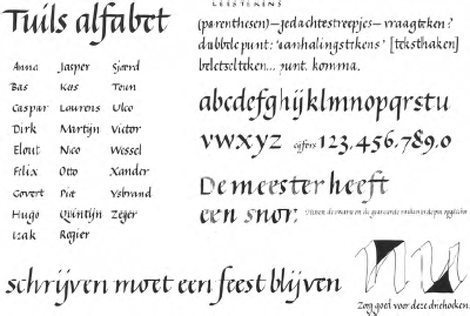 Tuils alfabet
Anna Jasper Sjoerd
Bas Kos Teun
Caspar Lourens Ulco
Dirk Martijn Victor
Elout Nico Wessel
Felix Otto Xander
Govert Piet Ysbrand
Hugo Quintijn Zeger
Izak Rogier
LEESTEKENS
(parenthesen)—gedachtestreepjes—vraagteken?
dubbele punt: 'aanhalingstekens' [teksthaken]
beletselteken... punt. komma.
abcdefghijklmnopqrstu
vwxyz cijfers 123.456.789.0
De meester heeft
een snor.
schrijven moet een feest blijven
nu
Zorg goed voor deze driehoeken.